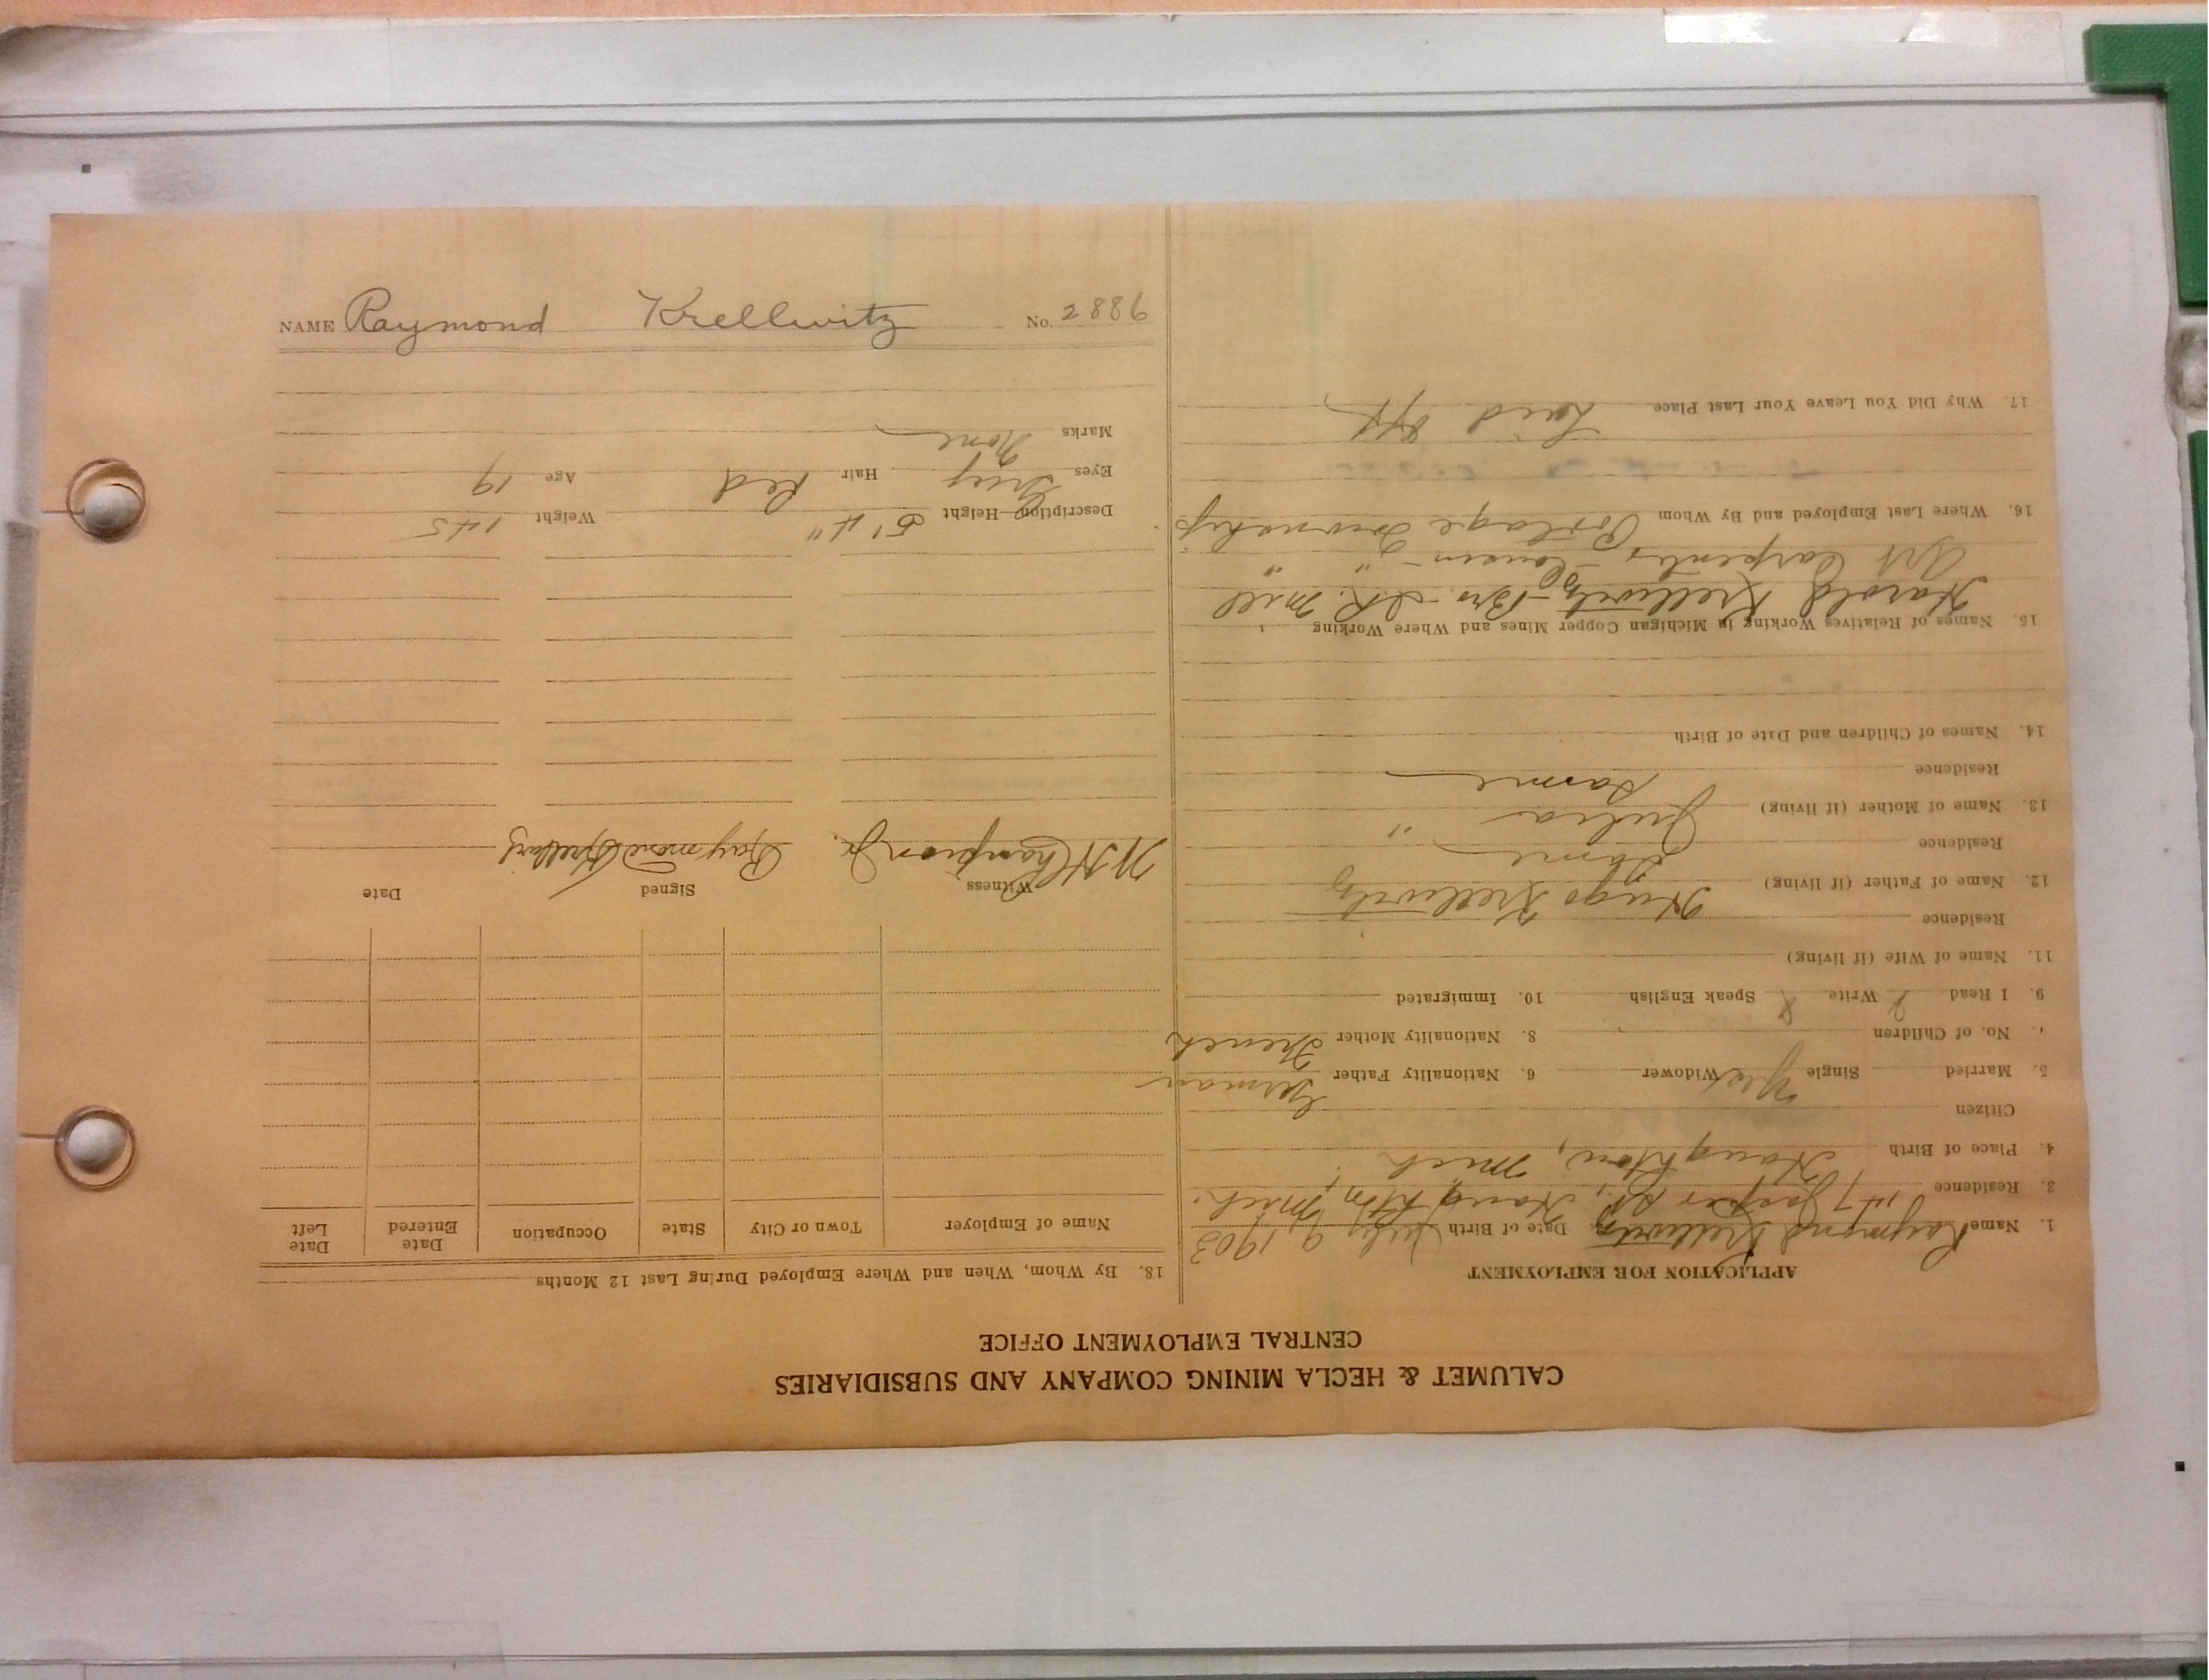 NAME Raymond Krellwitz No. 2886
CALUMET & HECLA MINING COMPANY AND SUBSIDIARIES
CENTRAL EMPLOYMENT OFFICE
APPLICATION FOR EMPLOYMENT
1. Name Raymond Krellwitz Date of Birth July 9, 1903
3. Residence 147 Jasper St., Houghton, Mich.
4. Place of Birth Houghton, Mich
Citizen
5. Married Single Yes Widower 6. Nationality Father German
7. No. of Children 8. Nationality Mother French
9. I Read Write Speak English 10. Immigrated
11. Name of Wife (if living)
Residence
12. Name of Father (if living) Hugo Krellwitz
Residence Same
13. Name of Mother (if living) Julia "
Residence Same
14. Names of Children and Date of Birth
15. Names of Relatives Working in Michigan Copper Mines and Where Working
Harold Krellwitz - Bro - I.R. Mill
Art Carpenter - Cousin - " "
16. Where Last Employed and By Whom Portage Township
17. Why Did You Leave Your Last Place Laid off
18. By Whom, When and Where Employed During Last 12 Months
Name of Employer Town or City State Occupation Date Entered Date Left
Witness Signed Date
W H Champion Jr. Raymond Krellwitz
Description—Height 5' 4" Weight 145
Eyes Grey Hair Red Age 19
Marks None